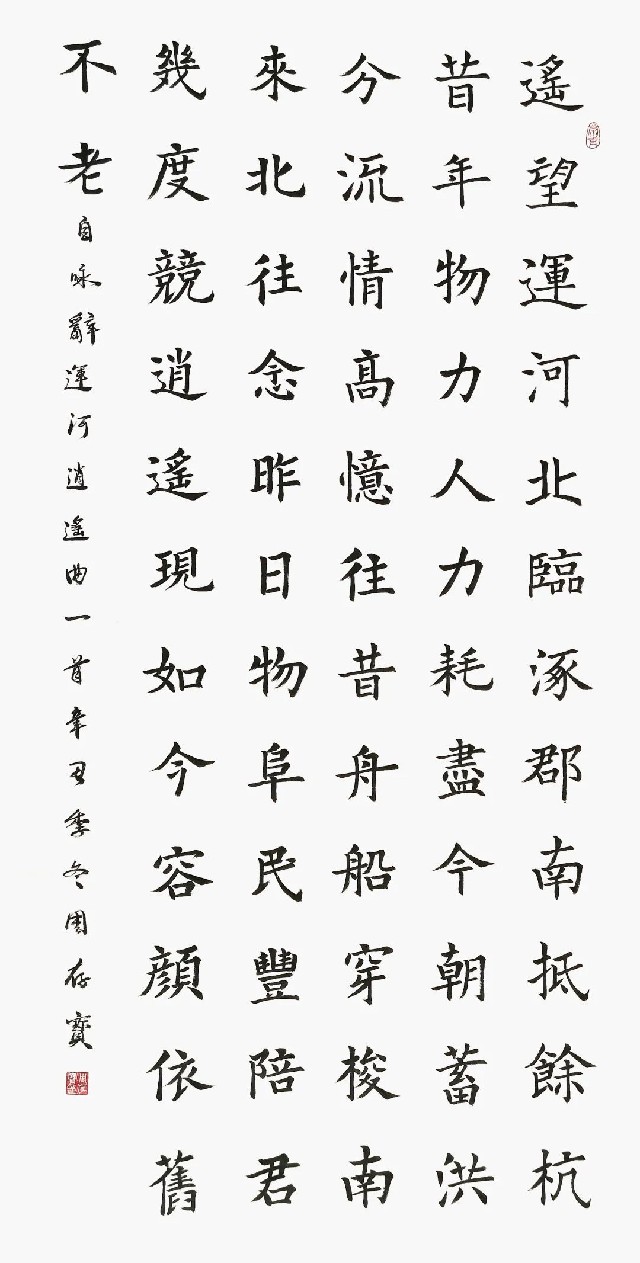 遙望運河北臨涿郡南抵餘杭
昔年物力人力耗盡今朝蓄洪
分流情高憶往昔舟船穿梭南
來北往念昨日物阜民豐陪君
幾度競逍遙現如今容顏依舊
不老
自咏辭運河逍遙曲一首辛丑季冬周存寶